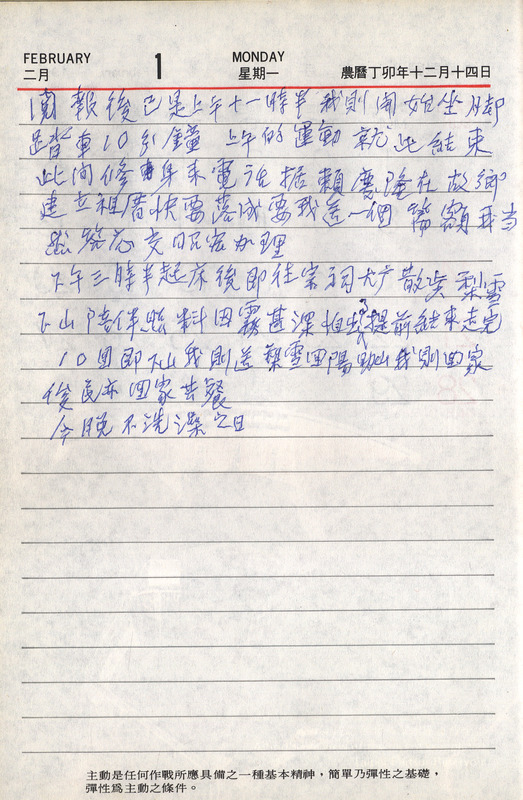 FEBRUARY 1 MONDAY
二月 星期一 農曆丁卯年十二月十四日
閱報後已是上午十一時半我則開始坐腳
踏車10分鐘 上午的運動就此結束
此間修年來電話据賴慶隆在故鄉
建立祖厝快要落成要我送一個匾額我當
然答應交昭宏办理
下午三時半起床後即往宗祠大广散步 梨雪
下山陪伴照料因霧甚深怕 提前結束走完
10回即下山我則送梨雪回陽明山我則回家
俊良亦回家共餐
今晚不洗澡之日
主動是任何作戰所應具備之一種基本精神，簡單乃彈性之基礎，
彈性爲主動之條件。